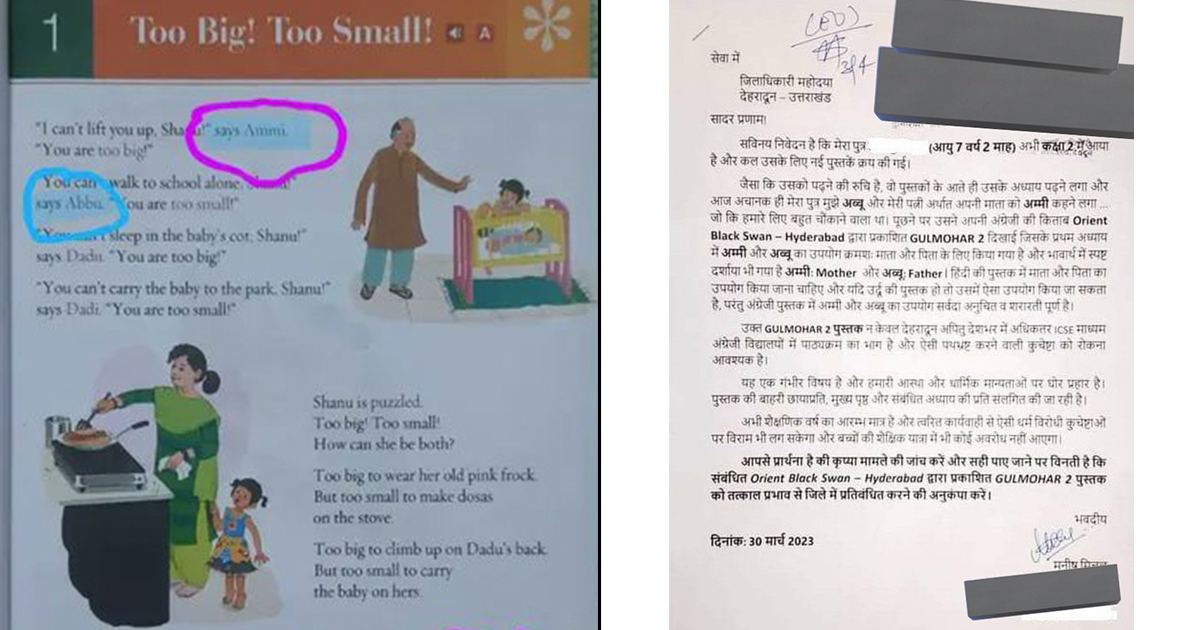 1
Too Big! Too Small!
A
"I can't lift you up, Shanu!" says Ammi.
"You are too big!"
You can walk to school alone,
says Abbu. "You are too small!"
sleep in the baby's cot, Shanu!"
says Dadu. "You are too big!"
"You can't carry the baby to the park, Shanu!"
says Dadi. "You are too small!"
Shanu is puzzled.
Too big! Too small!
How can she be both?
Too big to wear her old pink frock.
But too small to make dosas
on the stove.
Too big to climb up on Dadu's back.
But too small to carry
the baby on hers.
सेवा में
जिलाधिकारी महोदया
देहरादून – उत्तराखंड
सादर प्रणाम!
सविनय निवेदन है कि मेरा पुत्र (आयु 7 वर्ष 2 माह) अभी कक्षा 2 में आया
है और कल उसके लिए नई पुस्तकें क्रय की गई।
जैसा कि उसको पढ़ने की रुचि है, वो पुस्तकों के आते ही उसके अध्याय पढ़ने लगा और
आज अचानक ही मेरा पुत्र मुझे अब्बू और मेरी पत्नी अर्थात अपनी माता को अम्मी कहने लगा ...
जो कि हमारे लिए बहुत चौंकाने वाला था। पूछने पर उसने अपनी अंग्रेजी की किताब Orient
Black Swan – Hyderabad द्वारा प्रकाशित GULMOHAR 2 दिखाई जिसके प्रथम अध्याय
में अम्मी और अब्बू का उपयोग क्रमशः माता और पिता के लिए किया गया है और भावार्थ में स्पष्ट
दर्शाया भी गया है अम्मी: Mother और अब्बू: Father। हिंदी की पुस्तक में माता और पिता का
उपयोग किया जाना चाहिए और यदि उर्दू की पुस्तक हो तो उसमें ऐसा उपयोग किया जा सकता
है, परंतु अंग्रेजी पुस्तक में अम्मी और अब्बू का उपयोग सर्वदा अनुचित व शरारती पूर्ण है।
उक्त GULMOHAR 2 पुस्तक न केवल देहरादून अपितु देशभर में अधिकतर ICSE माध्यम
अंग्रेजी विद्यालयों में पाठ्यक्रम का भाग है और ऐसी पथभ्रष्ट करने वाली कुचेष्टा को रोकना
आवश्यक है।
यह एक गंभीर विषय है और हमारी आस्था और धार्मिक मान्यताओं पर घोर प्रहार है।
पुस्तक की बाहरी छायाप्रति, मुख्य पृष्ठ और संबंधित अध्याय की प्रति संलगित की जा रही है।
अभी शैक्षणिक वर्ष का आरम्भ मात्र है और त्वरित कार्यवाही से ऐसी धर्म विरोधी कुचेष्टाओं
पर विराम भी लग सकेगा और बच्चों की शैक्षिक यात्रा में भी कोई अवरोध नहीं आएगा।
आपसे प्रार्थना है की कृप्या मामले की जांच करें और सही पाए जाने पर विनती है कि
संबंधित Orient Black Swan – Hyderabad द्वारा प्रकाशित GULMOHAR 2 पुस्तक
को तत्काल प्रभाव से जिले में प्रतिबंधित करने की अनुकंपा करें।
भवदीय
दिनांक: 30 मार्च 2023